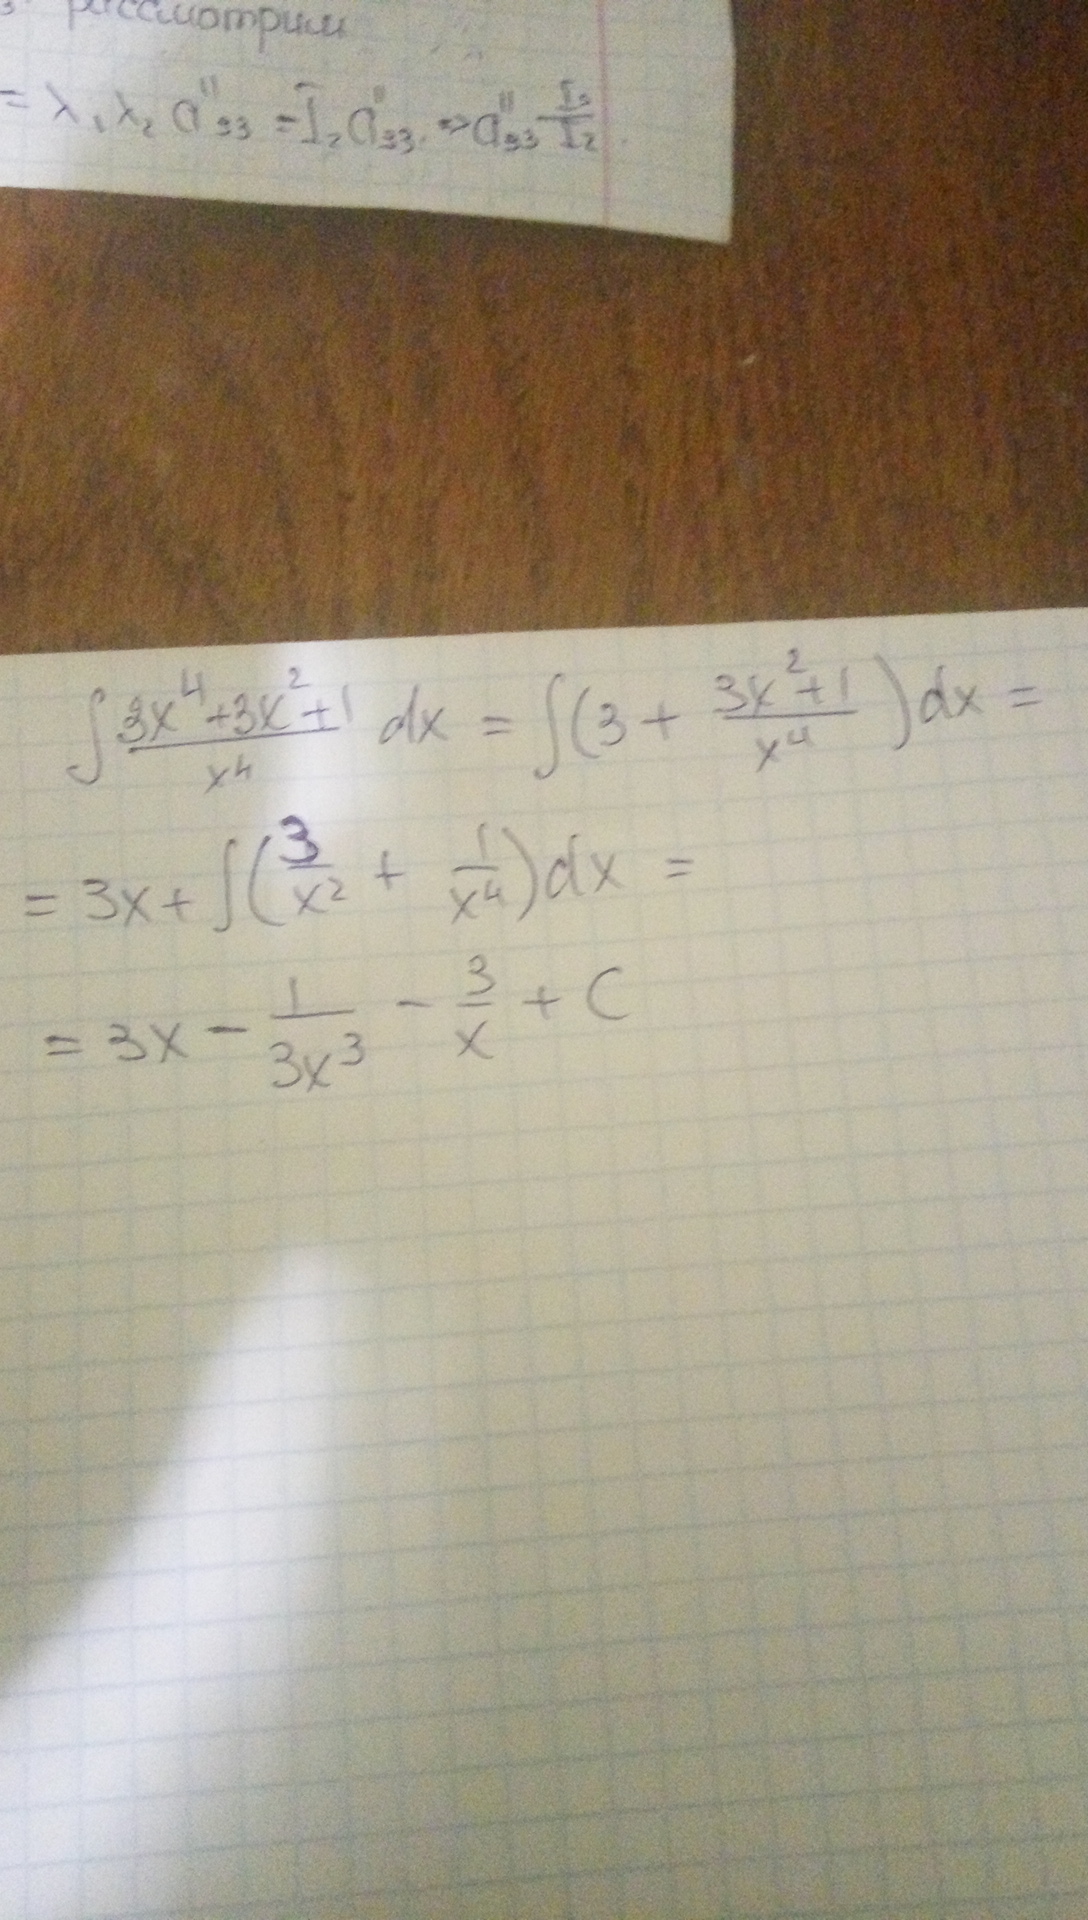 рассмотрим
= λ₁ λ₂ a''₃₃ = I₂ a''₃₃. => a''₃₃ I₃/I₂.
∫ (3x⁴+3x²+1)/x⁴ dx = ∫(3 + (3x²+1)/x⁴)dx =
= 3x + ∫(3/x² + 1/x⁴)dx =
= 3x - 1/(3x³) - 3/x + C